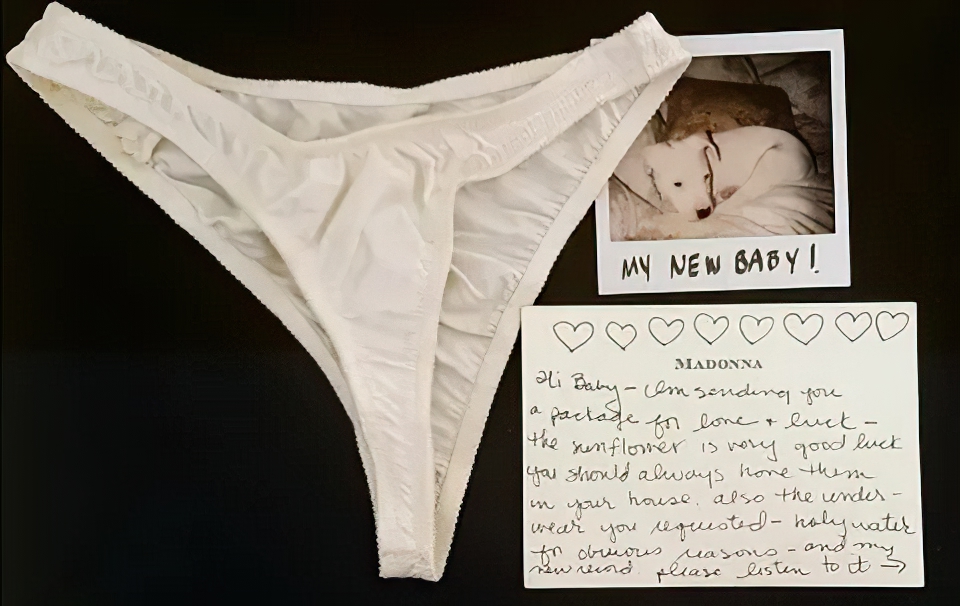 MY NEW BABY!
MADONNA
Hi Baby - Im sending you
a package for love + luck -
the sunflower is very good luck
you should always have them
in your house. also the under-
wear you requested - holy water
for obvious reasons - and my
new record. please listen to it →